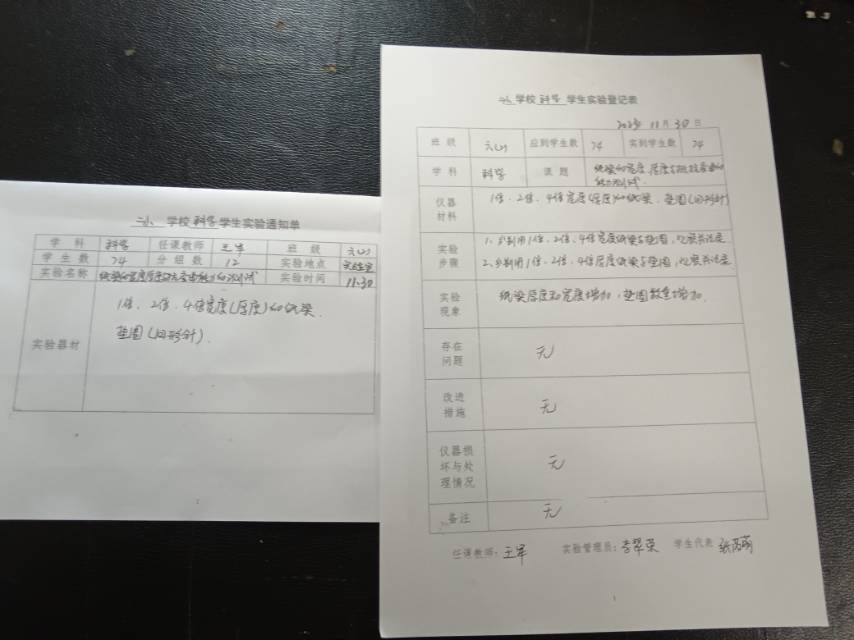 二小 学校 科学 学生实验通知单
学科 科学 任课教师 王军 班级 六(2)
学生数 74 分组数 12 实验地点 实验室
实验名称 纸梁的宽度厚度与抗弯曲能力的测试 实验时间 11.30
实验器材
1倍、2倍、4倍宽度(厚度)的纸梁.
垫圈(回形针).
学校 科学 学生实验登记表
11月30日
班级 六(2) 应到学生数 74 实到学生数 74
学科 科学 课题 纸梁的宽度、厚度与抗弯曲的
能力测试.
仪器材料
1倍、2倍、4倍宽度(厚度)的纸梁、垫圈(回形针)
实验步骤
1、分别用1倍、2倍、4倍宽度纸梁与垫圈,
2、分别用1倍、2倍、4倍厚度纸梁与垫圈,
实验现象
纸梁厚度和宽度增加,垫圈数量增加.
存在问题
无
改进措施
无
仪器损坏与处理情况
无
备注
无
任课教师:王军 实验管理员:李翠荣 学生代表